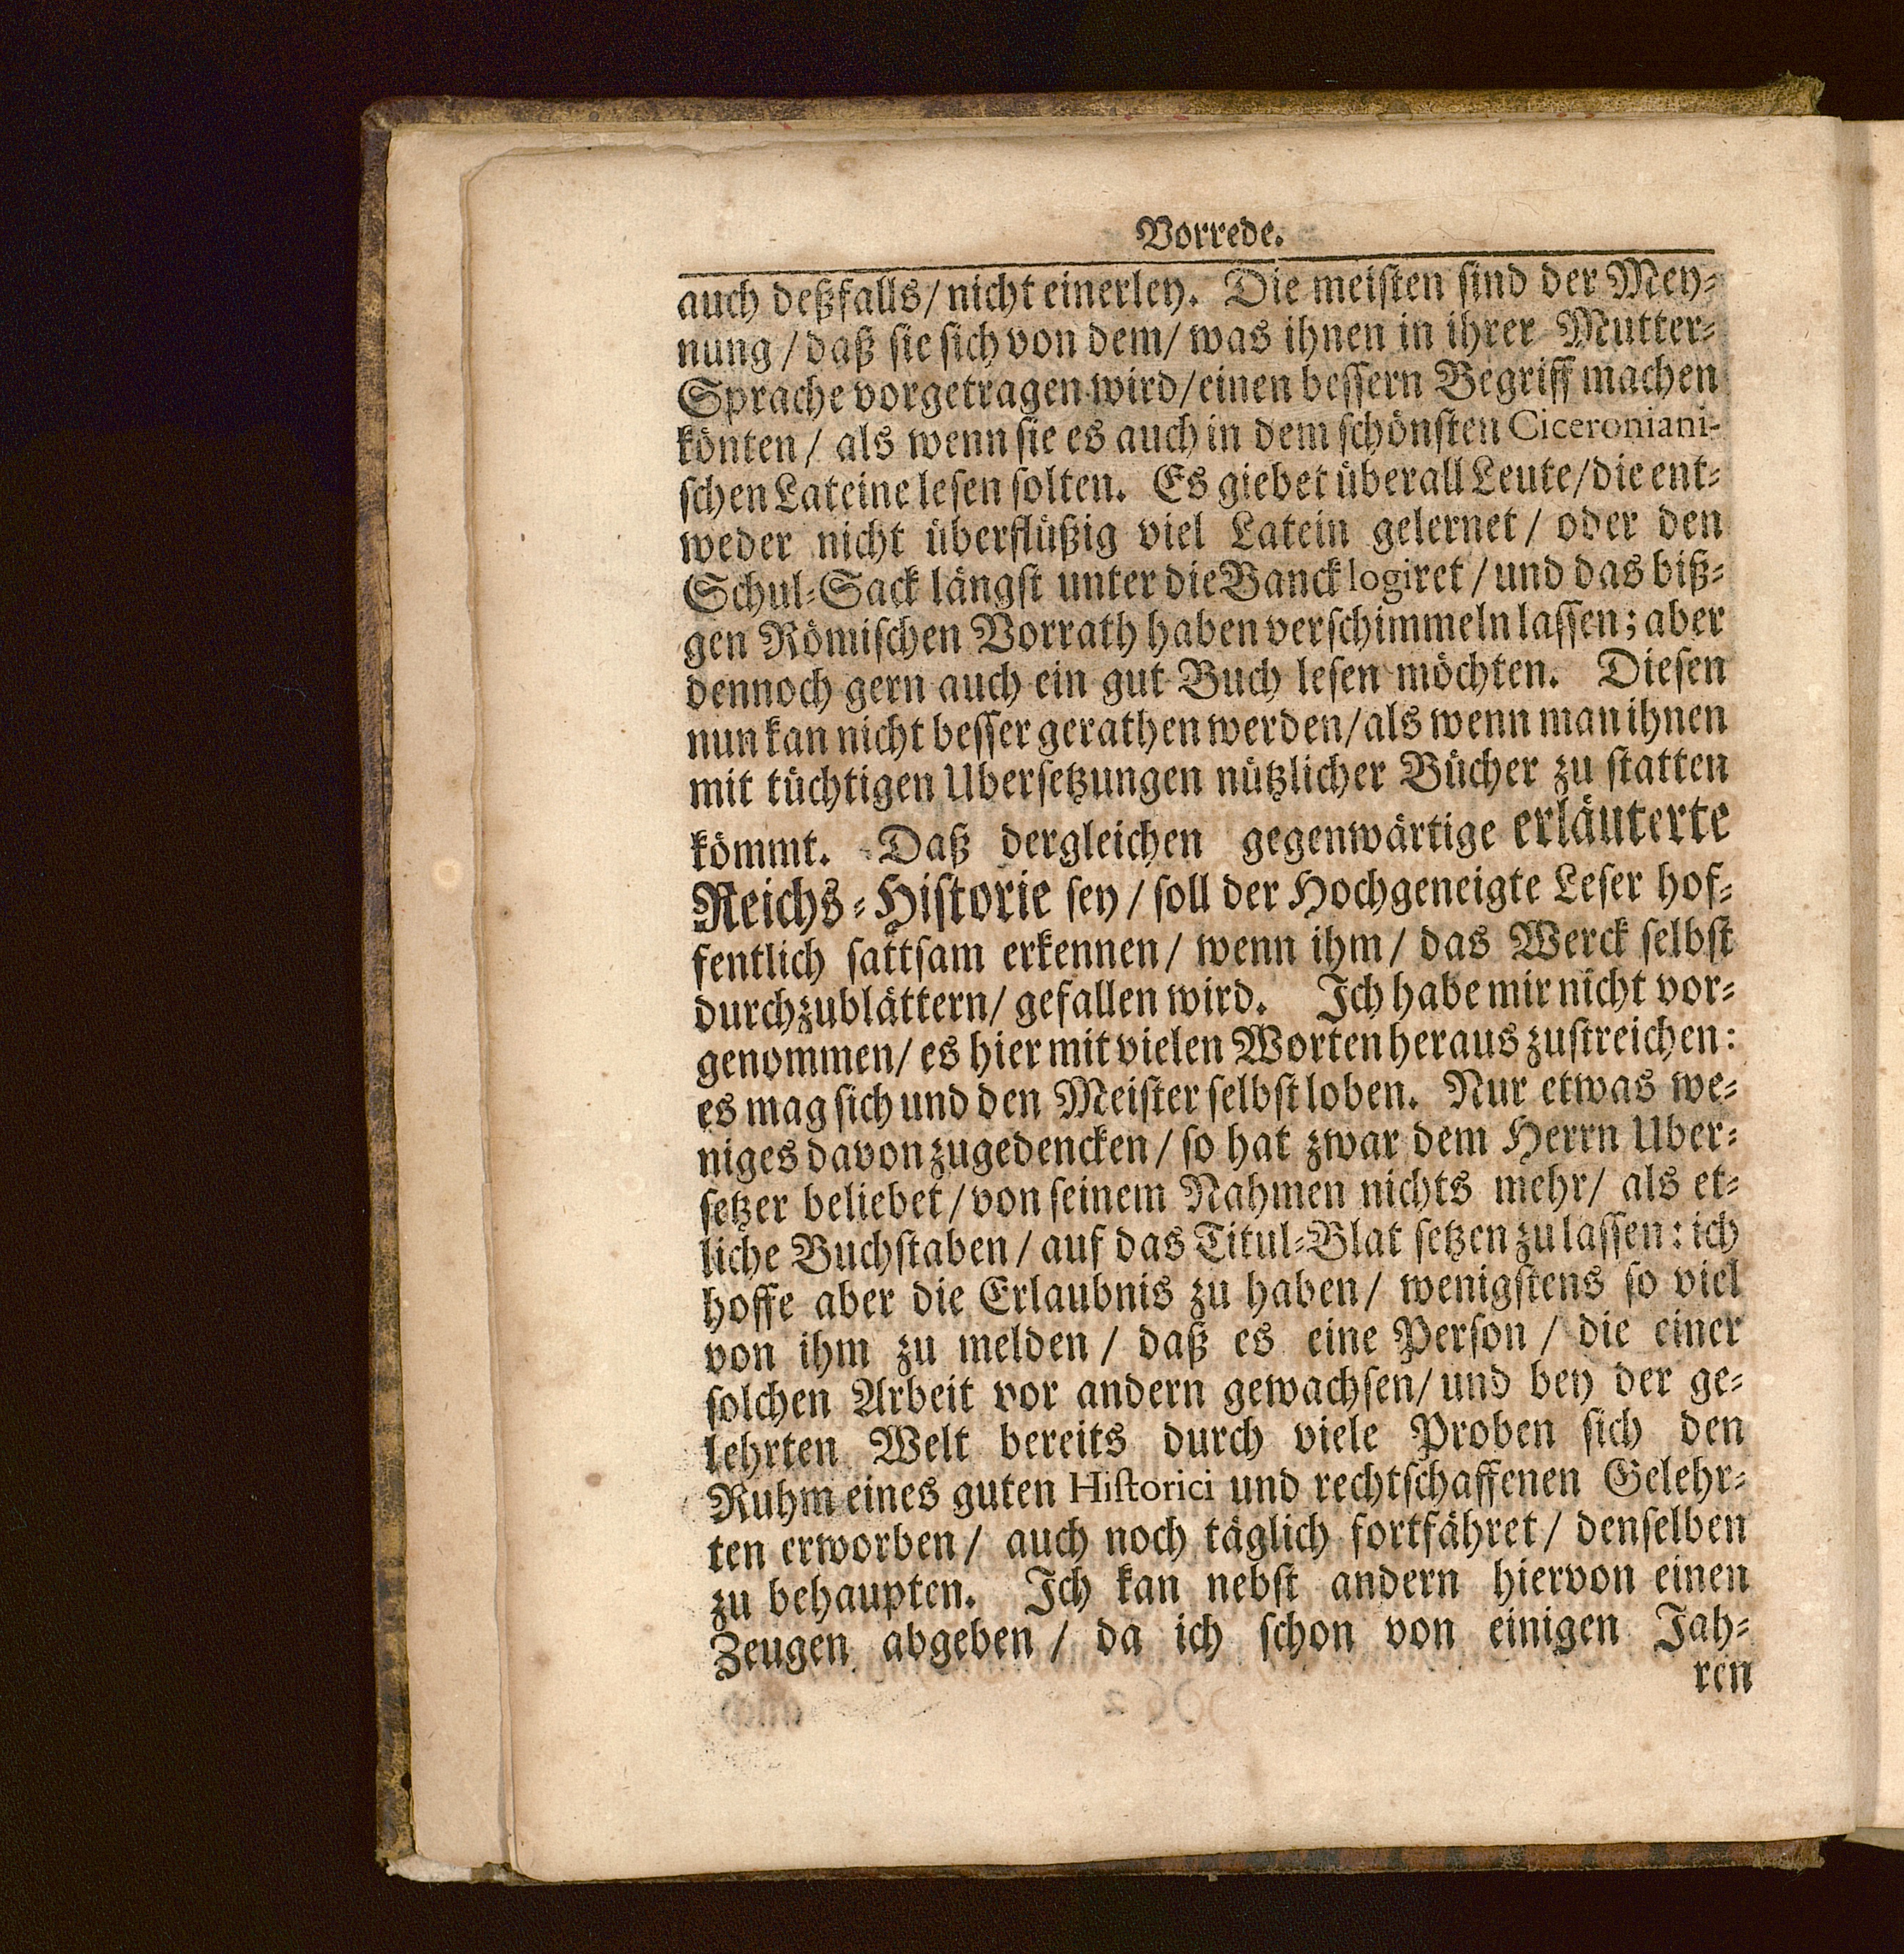 Vorrede.
auch deßfalls/ nicht einerley. Die meisten sind der Mey-
nung / daß sie sich von dem/ was ihnen in ihrer Mutter-
Sprache vorgetragen wird/ einen bessern Begriff machen
könten / als wenn sie es auch in dem schönsten Ciceroniani-
schen Lateine lesen solten. Es giebet überall Leute/ die ent-
weder nicht überflüßig viel Latein gelernet / oder den
Schul-Sack längst unter die Banck logiret / und das biß-
gen Römischen Vorrath haben verschimmeln lassen; aber
dennoch gern auch ein gut Buch lesen möchten. Diesen
nun kan nicht besser gerathen werden/ als wenn man ihnen
mit tüchtigen Ubersetzungen nützlicher Bücher zu statten
kömmt. Daß dergleichen gegenwärtige erläuterte
Reichs-Historie sey / soll der Hochgeneigte Leser hof-
fentlich sattsam erkennen/ wenn ihm / das Werck selbst
durchzublättern/ gefallen wird. Ich habe mir nicht vor-
genommen/ es hier mit vielen Worten heraus zustreichen:
es mag sich und den Meister selbst loben. Nur etwas we-
niges davon zugedencken / so hat zwar dem Herrn Uber-
setzer beliebet / von seinem Nahmen nichts mehr/ als et-
liche Buchstaben / auf das Titul-Blat setzen zu lassen: ich
hoffe aber die Erlaubnis zu haben/ wenigstens so viel
von ihm zu melden / daß es eine Person / die einer
solchen Arbeit vor andern gewachsen/ und bey der ge-
lehrten Welt bereits durch viele Proben sich den
Ruhm eines guten Historici und rechtschaffenen Gelehr-
ten erworben / auch noch täglich fortfähret / denselben
zu behaupten. Ich kan nebst andern hiervon einen
Zeugen abgeben / da ich schon von einigen Jah-
ren